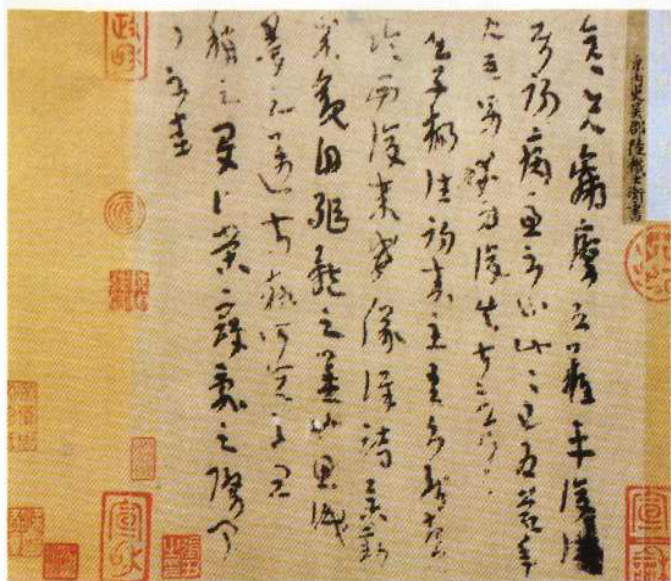 原內史吳郡陸機士衡書
彦先羸瘵恐難平復往
屬初病慮不止此此已為慶承
使唯男幸為復失前憂耳
吳子楊往初來主吾不能盡
臨西復來威儀詳跱舉動
成觀自軀體之美也思識
量之邁前執所恒有宜
稱之夏伯榮寇亂之際聞
問不悉
政和
宣和